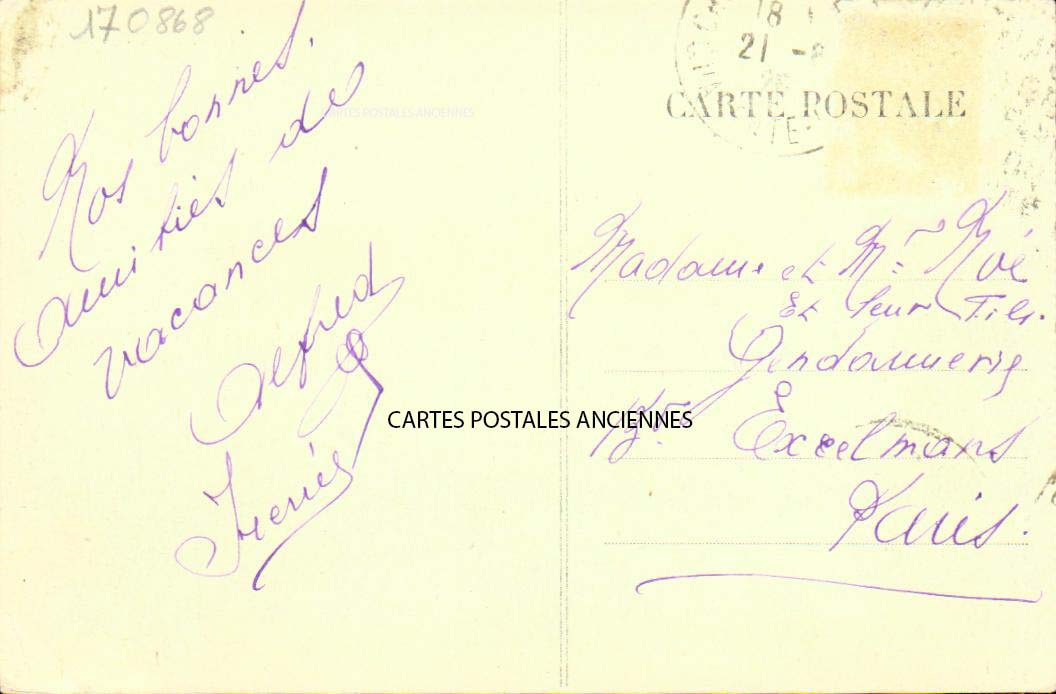 170868
Nos bonnes
amitiés de
vacances
Alfred
CARTES POSTALES ANCIENNES
18
21 -
CARTE POSTALE
Madame et Mr Noé
et leur Fils.
Gendarmerie
Bd Exelmans
Paris.
CARTES POSTALES ANCIENNES